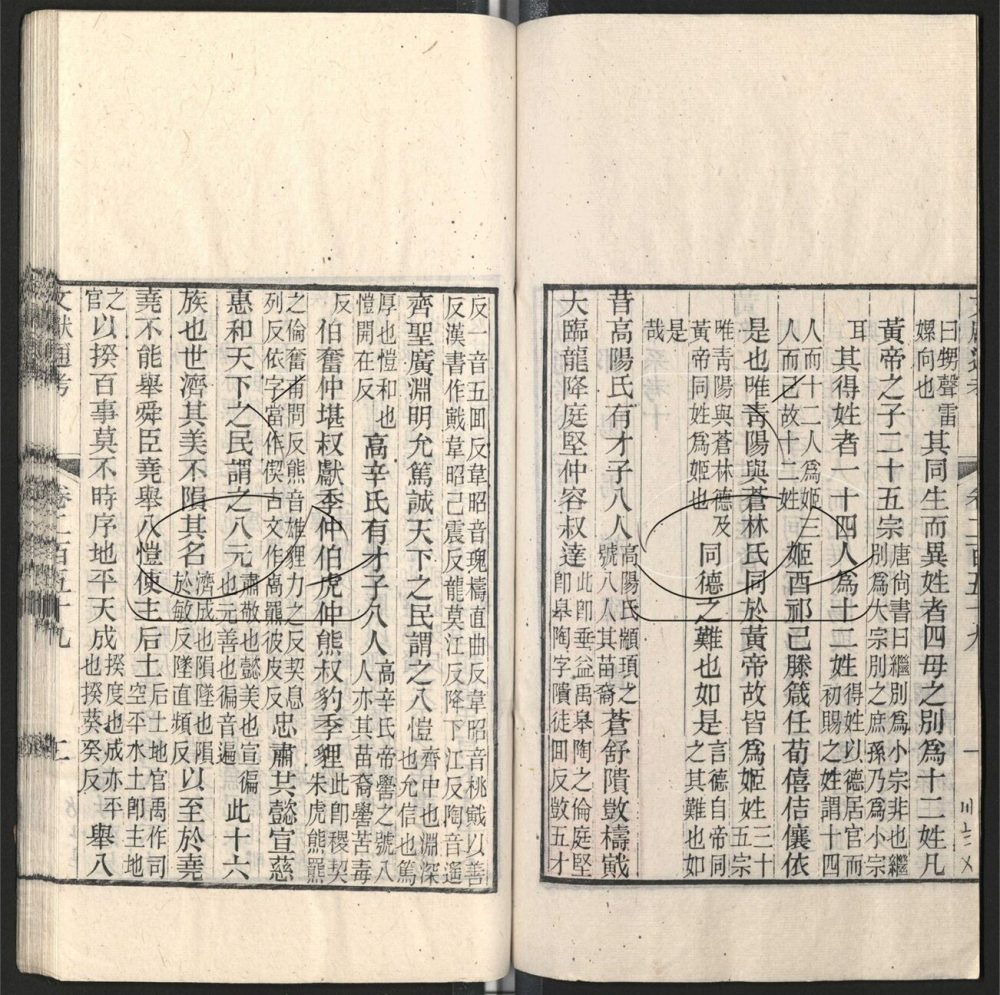 曰甥聲雷嫘向也其同生而異姓者四毋之別爲十二姓凡
黃帝之子二十五宗唐尚書曰繼別爲小宗非也繼別爲大宗別之庶孫乃爲小宗
耳其得姓者一十四人爲十二姓得姓以德居官而初賜之姓謂十四
人而十二人爲姬三人而已故十二姓姬酉祁己滕箴任荀僖佶儇依
是也唯青陽與蒼林氏同於黃帝故皆爲姬姓三十五宗
唯青陽與蒼林德及黃帝同姓爲姬也同德之難也如是言德自帝同之其難也如
是哉
昔高陽氏有才子八人高陽氏顓頊之號八人其苗裔蒼舒隤敱檮戭
大臨龍降庭堅仲容叔達此卽垂益禹皋陶之倫庭堅卽皋陶字隤徒回反敱五才
反一音五回反韋昭音瑰檮直曲反韋昭音桃戭以善反漢書作戭韋昭己震反龍莫江反降下江反陶音遙
齊聖廣淵明允篤誠天下之民謂之八愷齊中也淵深也允信也篤
厚也愷和也愷開在反高辛氏有才子八人高辛氏帝嚳之號八人亦其苗裔嚳苦毒
反伯奮仲堪叔獻季仲伯虎仲熊叔豹季貍此卽稷契朱虎熊羆
之倫奮甫問反熊音雄貍力之反契息列反依字當作偰古文作离羆彼皮反忠肅共懿宣慈
惠和天下之民謂之八元肅敬也懿美也宣徧也元善也徧音遍此十六
族也世濟其美不隕其名濟成也隕墜也隕於敏反墜直類反以至於堯
堯不能舉舜臣堯舉八愷使主后土后土地官禹作司空平水土卽主地
之官以揆百事莫不時序地平天成揆度也成亦平也揆葵癸反舉八
文獻通考 卷二百五十九 二